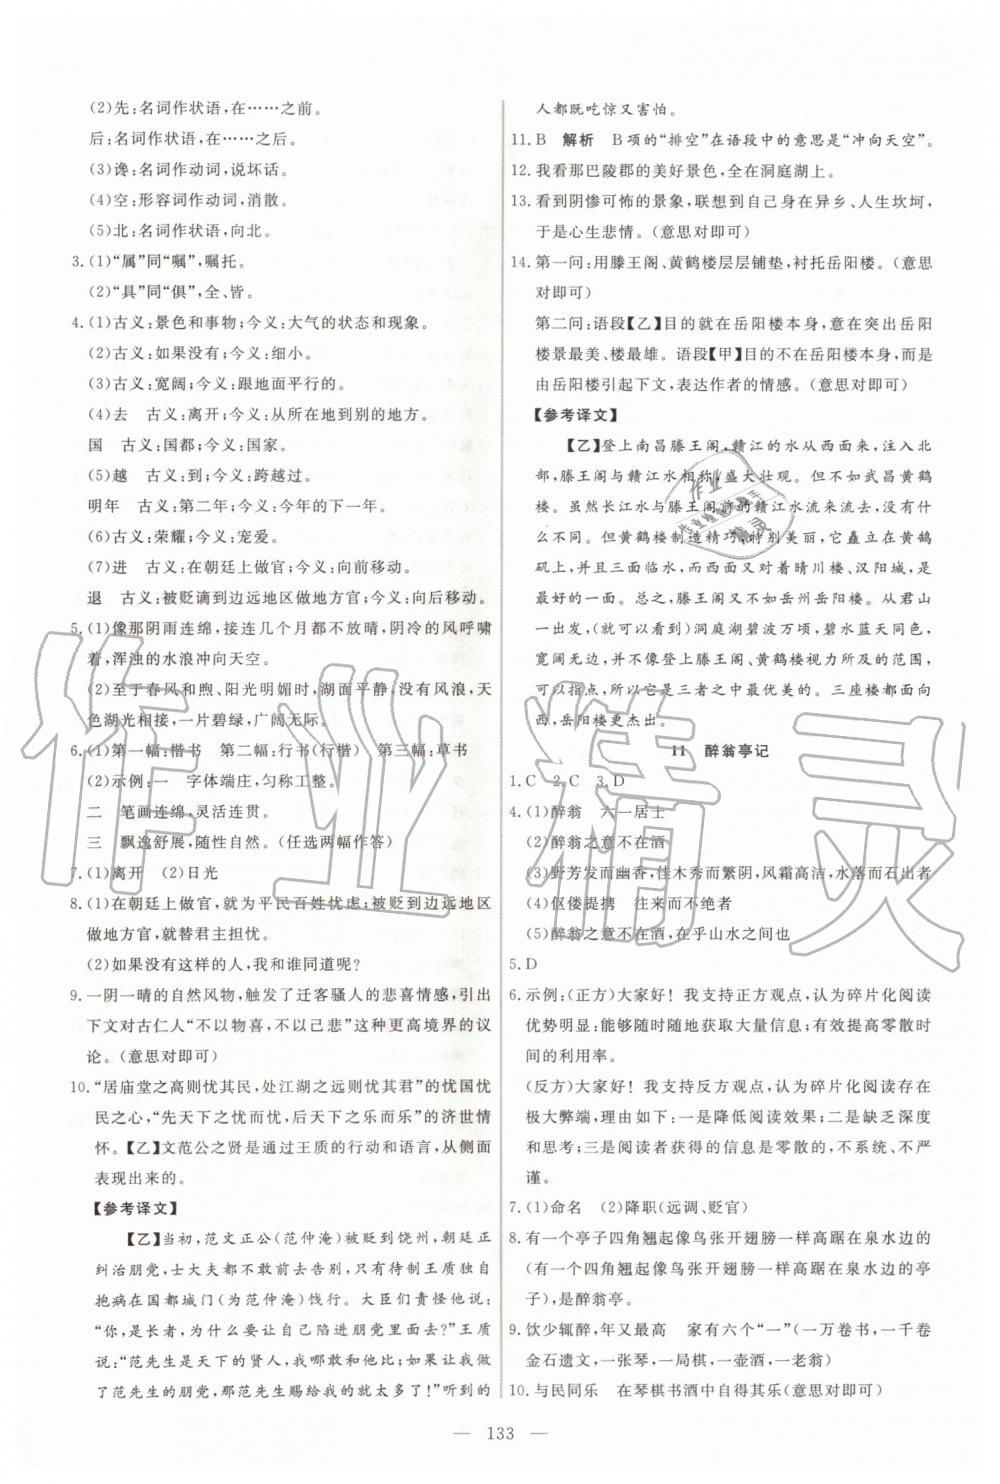 (2)先:名词作状语,在……之前。
后:名词作状语,在……之后。
(3)谗:名词作动词,说坏话。
(4)空:形容词作动词,消散。
(5)北:名词作状语,向北。
3.(1)“属”同“嘱”,嘱托。
(2)“具”同“俱”,全、皆。
4.(1)古义:景色和事物;今义:大气的状态和现象。
(2)古义:如果没有;今义:细小。
(3)古义:宽阔;今义:跟地面平行的。
(4)去 古义:离开;今义:从所在地到别的地方。
国 古义:国都;今义:国家。
(5)越 古义:到;今义:跨越过。
明年 古义:第二年;今义:今年的下一年。
(6)古义:荣耀;今义:宠爱。
(7)进 古义:在朝廷上做官;今义:向前移动。
退 古义:被贬谪到边远地区做地方官;今义:向后移动。
5.(1)像那阴雨连绵,接连几个月都不放晴,阴冷的风呼啸
着,浑浊的水浪冲向天空。
(2)至于春风和煦、阳光明媚时,湖面平静,没有风浪,天
色湖光相接,一片碧绿,广阔无际。
6.(1)第一幅:楷书 第二幅:行书(行楷) 第三幅:草书
(2)示例:一 字体端庄,匀称工整。
二 笔画连绵,灵活连贯。
三 飘逸舒展,随性自然。(任选两幅作答)
7.(1)离开 (2)日光
8.(1)在朝廷上做官,就为平民百姓忧虑;被贬到边远地区
做地方官,就替君主担忧。
(2)如果没有这样的人,我和谁同道呢?
9.一阴一晴的自然风物,触发了迁客骚人的悲喜情感,引出
下文对古仁人“不以物喜,不以己悲”这种更高境界的议
论。(意思对即可)
10.“居庙堂之高则忧其民,处江湖之远则忧其君”的忧国忧
民之心,“先天下之忧而忧,后天下之乐而乐”的济世情
怀。【乙】文范公之贤是通过王质的行动和语言,从侧面
表现出来的。
【参考译文】
【乙】当初,范文正公(范仲淹)被贬到饶州,朝廷正
纠治朋党,士大夫都不敢前去告别,只有待制王质独自
抱病在国都城门(为范仲淹)饯行。大臣们责怪他说:
“你,是长者,为什么要让自己陷进朋党里面去?”王质
说:“范先生是天下的贤人,我哪敢和他比;如果让我做
了范先生的朋党,那范先生赐给我的就太多了!”听到的
人都既吃惊又害怕。
11.B 解析 B项的“排空”在语段中的意思是“冲向天空”。
12.我看那巴陵郡的美好景色,全在洞庭湖上。
13.看到阴惨可怖的景象,联想到自己身在异乡、人生坎坷,
于是心生悲情。(意思对即可)
14.第一问:用滕王阁、黄鹤楼层层铺垫,衬托岳阳楼。(意思
对即可)
第二问:语段【乙】目的就在岳阳楼本身,意在突出岳阳
楼景最美、楼最雄。语段【甲】目的不在岳阳楼本身,而是
由岳阳楼引起下文,表达作者的情感。(意思对即可)
【参考译文】
【乙】登上南昌滕王阁,赣江的水从西面来,注入北
部,滕王阁与赣江水相称,盛大壮观。但不如武昌黄鹤
楼。虽然长江水与滕王阁前的赣江水流来流去,没有什
么不同。但黄鹤楼制造精巧,特别美丽,它矗立在黄鹤
矶上,并且三面临水,又与西面对着晴川楼、汉阳城,是
最好的一面。总之,滕王阁又不如岳州岳阳楼。从君山
一出发,(就可以看到)洞庭湖碧波万顷,水蓝天同色,
宽阔无边,并不像登上滕王阁、黄鹤楼视力所及的范围,
可以指点,所以它是三者之中最优美的。三座楼都面向
西,岳阳楼更杰出。
11 醉翁亭记
1.C 2.C 3.D
4.(1)醉翁 六一居士
(2)醉翁之意不在酒
(3)野芳发而幽香,佳木秀而繁阴,风霜高洁,水落而石出者
(4)伛偻提携 往来而不绝者
(5)醉翁之意不在酒,在乎山水之间也
5.D
6.示例:(正方)大家好!我支持正方观点,认为碎片化阅读
优势明显:能够随时随地获取大量信息;有效提高零散时
间的利用率。
(反方)大家好!我支持反方观点,认为碎片化阅读存在
极大弊端,理由如下:一是降低阅读效果;二是缺乏深度
和思考;三是阅读者获得的信息是零散的,不系统、不严
谨。
7.(1)命名 (2)降职(远调、贬官)
8.有一个亭子四角翘起像鸟张开翅膀一样高踞在泉水边的
(有一个四角翘起像鸟张开翅膀一样高踞在泉水边的亭
子),是醉翁亭。
9.饮少辄醉,年又最高 家有六个“一”(一万卷书,一千卷
金石遗文,一张琴,一局棋,一壶酒,一老翁)
10.与民同乐 在琴棋书酒中自得其乐(意思对即可)
— 133 —
作业精灵